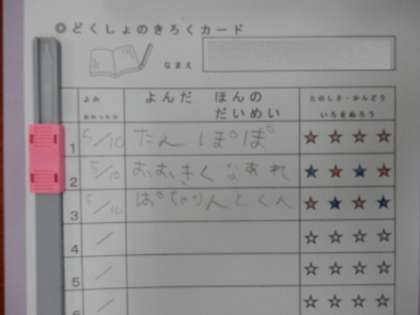 ◎どくしょのきろくカード
なまえ
よみおわったひ よんだ ほんのだいめい たのしさ・かんどういろをぬろう
1 5/10 たんぽぽ ☆☆☆☆
2 5/10 おおきくなあれ ☆☆☆☆
3 5/10 ☆☆☆☆
4 / ☆☆☆☆
5 / ☆☆☆☆
6 / ☆☆☆☆